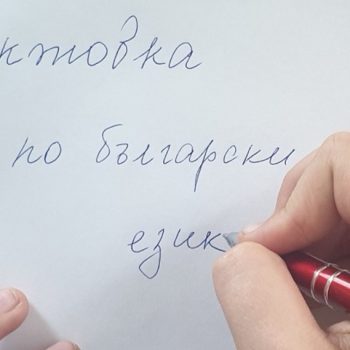 ктовка
по български
език